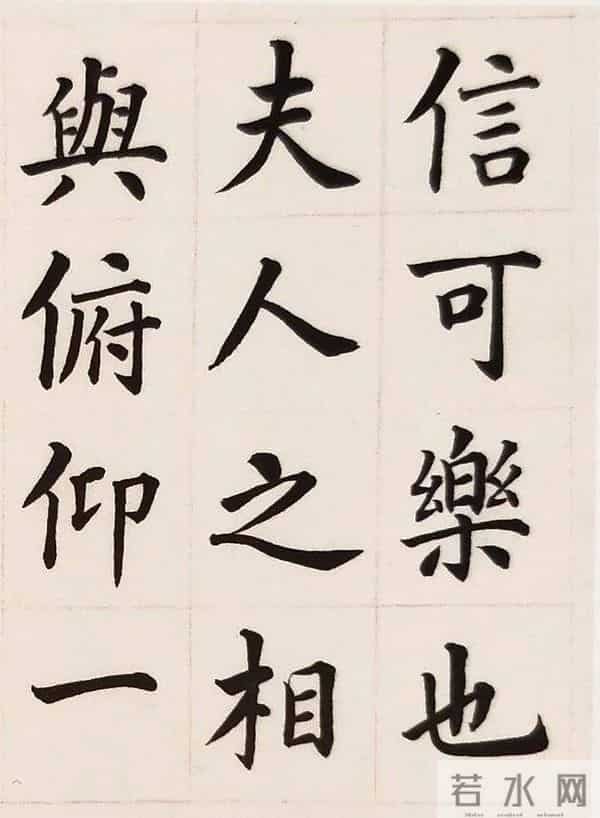 信可樂也
夫人之相
與俯仰一
若水网